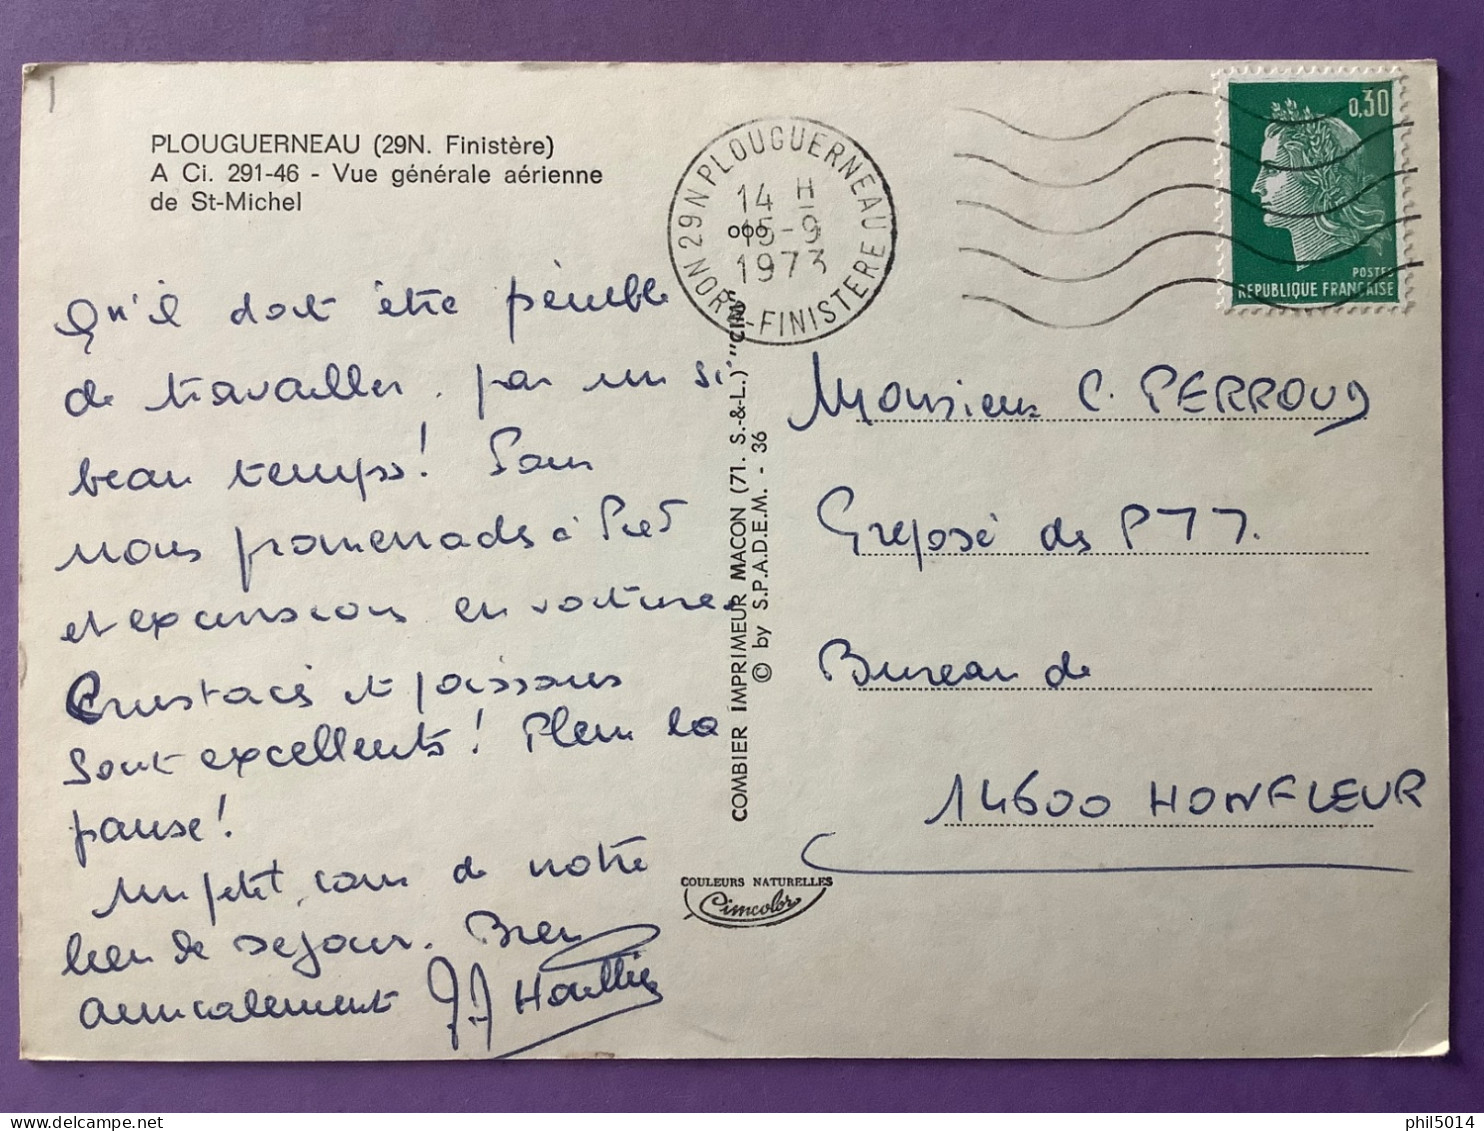 PLOUGUERNEAU (29N. Finistère)
A Ci. 291-46 - Vue générale aérienne
de St-Michel
29N PLOUGUERNEAU
14 H
15-9
1973
NORD-FINISTERE
0,30
POSTES
REPUBLIQUE FRANÇAISE
Qu'il doit être pénible
de travailler, par un si
beau temps! Pour
nous promenades à
et excursions en voiture.
Crustacés et poissons
sont excellents! Plein la
panse!
Un petit, coin de notre
lieu de séjour. Bien
amicalement
COMBIER IMPRIMEUR MACON (71. S.-&-L.) "CIM"
© by S.P.A.D.E.M. - 36
COULEURS NATURELLES
Cimcolor
Monsieur C. PERROUD
Préposé des PTT.
Bureau de
14600 HONFLEUR
phil5014